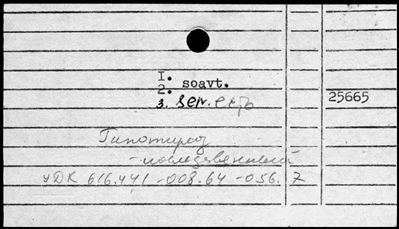 I.
2. soavt.
3. ser.
25665
Гипотиреоз
- наследственный
УДК 616.441-008.64-056.7